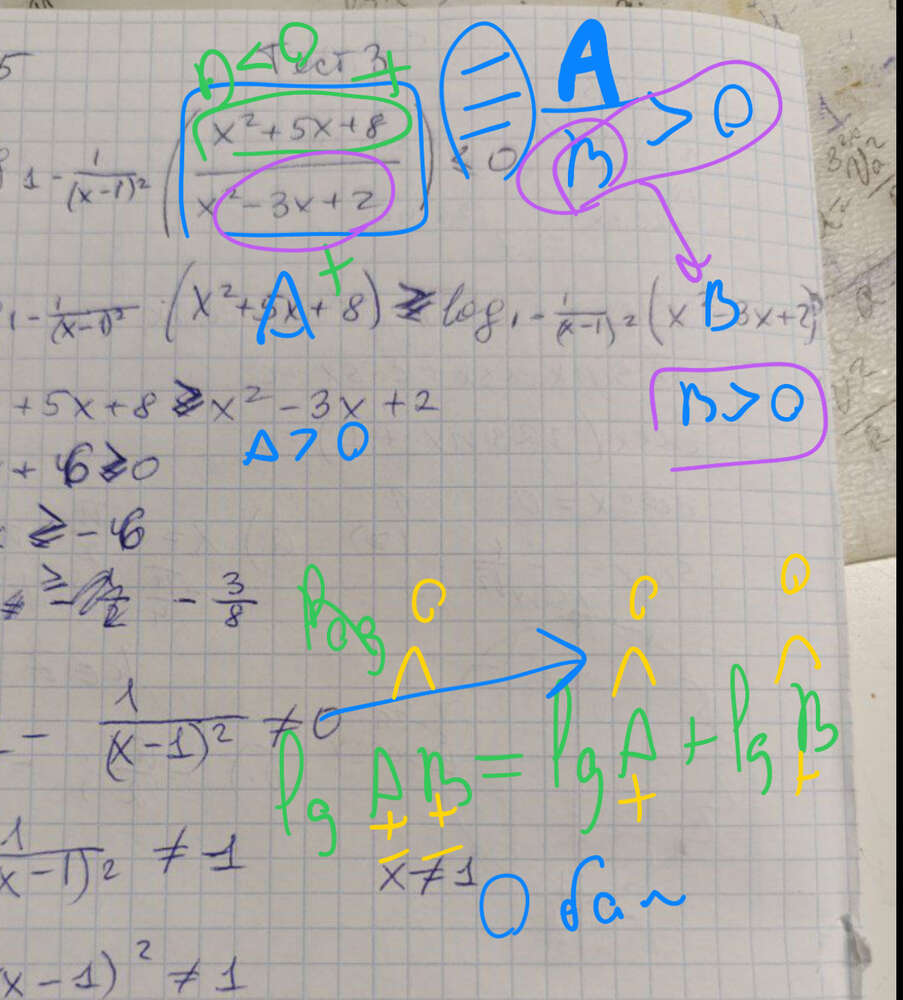 5 Тест 3
D < 0 +
1 - \frac{1}{(x-1)^2} \left( \frac{x^2+5x+8}{x^2-3x+2} \right) ≤ 0
+
\frac{A}{B} > 0
1 - \frac{1}{(x-1)^2} (x^2+5x+8) ≥ log_{1 - \frac{1}{(x-1)^2}} (x^2-3x+2)
A B
B > 0
+5x+8 ≥ x^2-3x+2
A > 0
+ 6 ≥ 0
≥ -6
≥ - \frac{3}{8}
0 0 0
- \frac{1}{(x-1)^2} ≠ 0
lg AB = lg A + lg B
+ + + +
- -
\frac{1}{x-1)^2} ≠ 1 x ≠ 1
0 бал
x-1)^2 ≠ 1